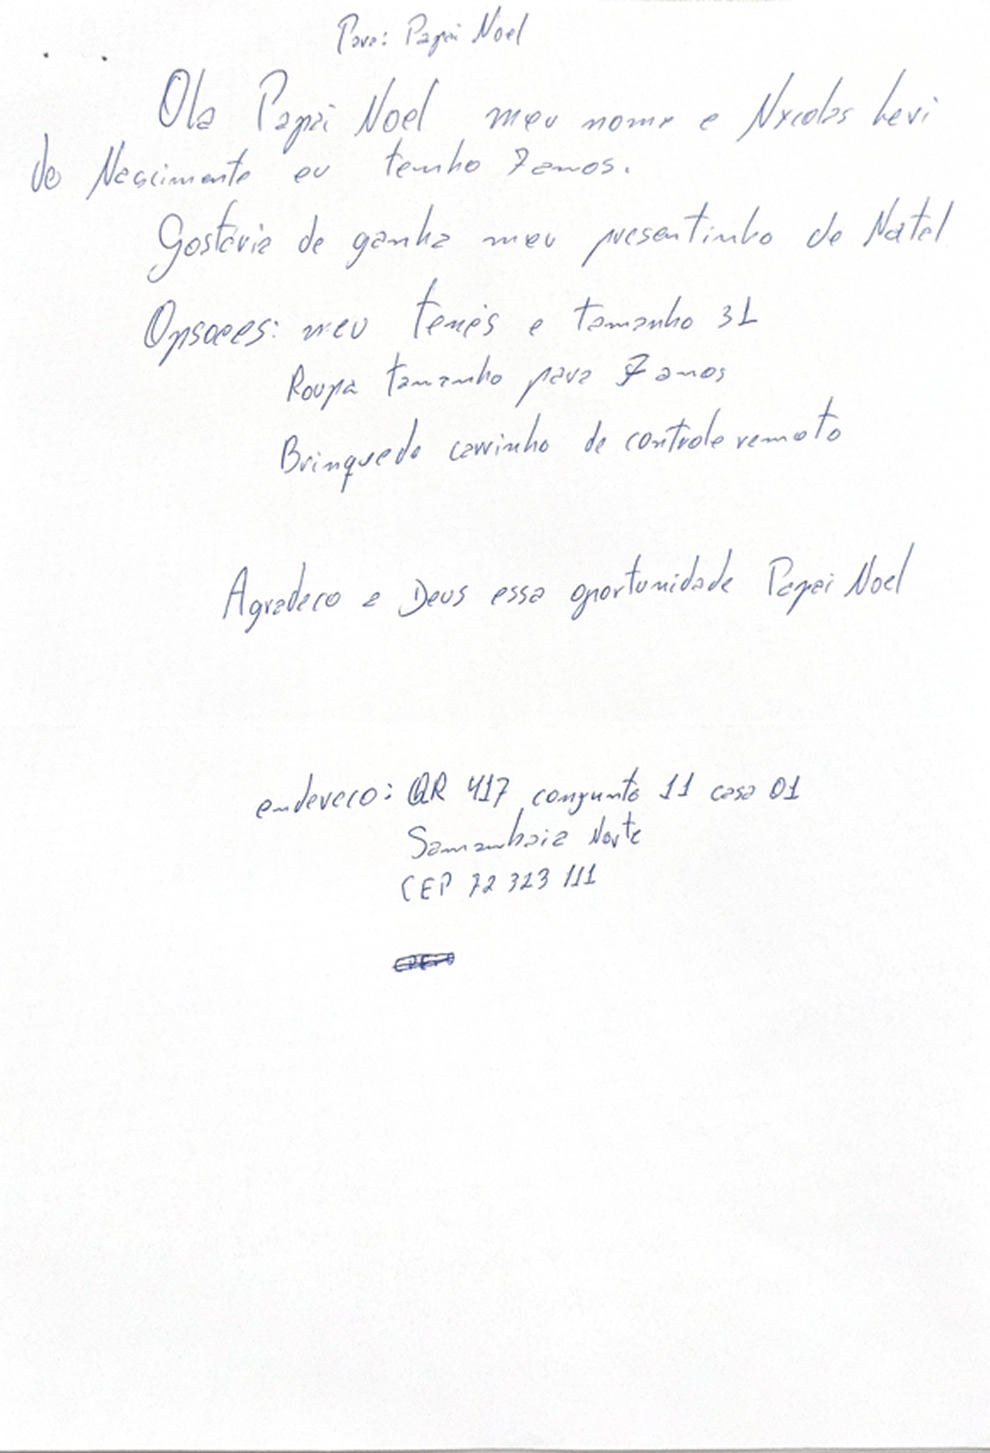 Para: Papai Noel
Ola Papai Noel meu nome e Nycolas Levi
do Nascimento eu tenho 7 anos.
Gostária de ganha meu presentinho de Natal
Opsoees: meu tenes e tamanho 31
Roupa tamanho para 7 anos
Brinquedo carrinho de controle remoto
Agradeco a Deus essa oportunidade Papai Noel
endereco: QR 417 conjunto 11 casa 01
Samambaia Norte
CEP 72 323 111